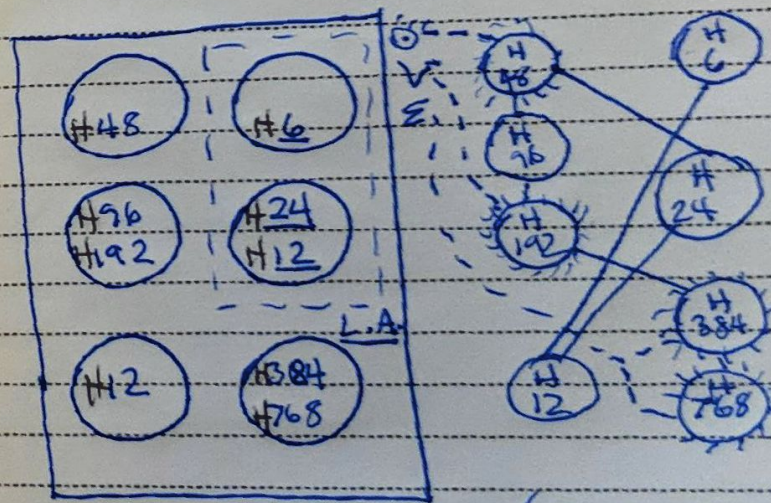 H48
H6
H96
H192
H24
H12
L.A.
H12
H384
H768
O
V
E
H
48
H
96
H
192
H
12
H
6
H
24
H
384
H
768